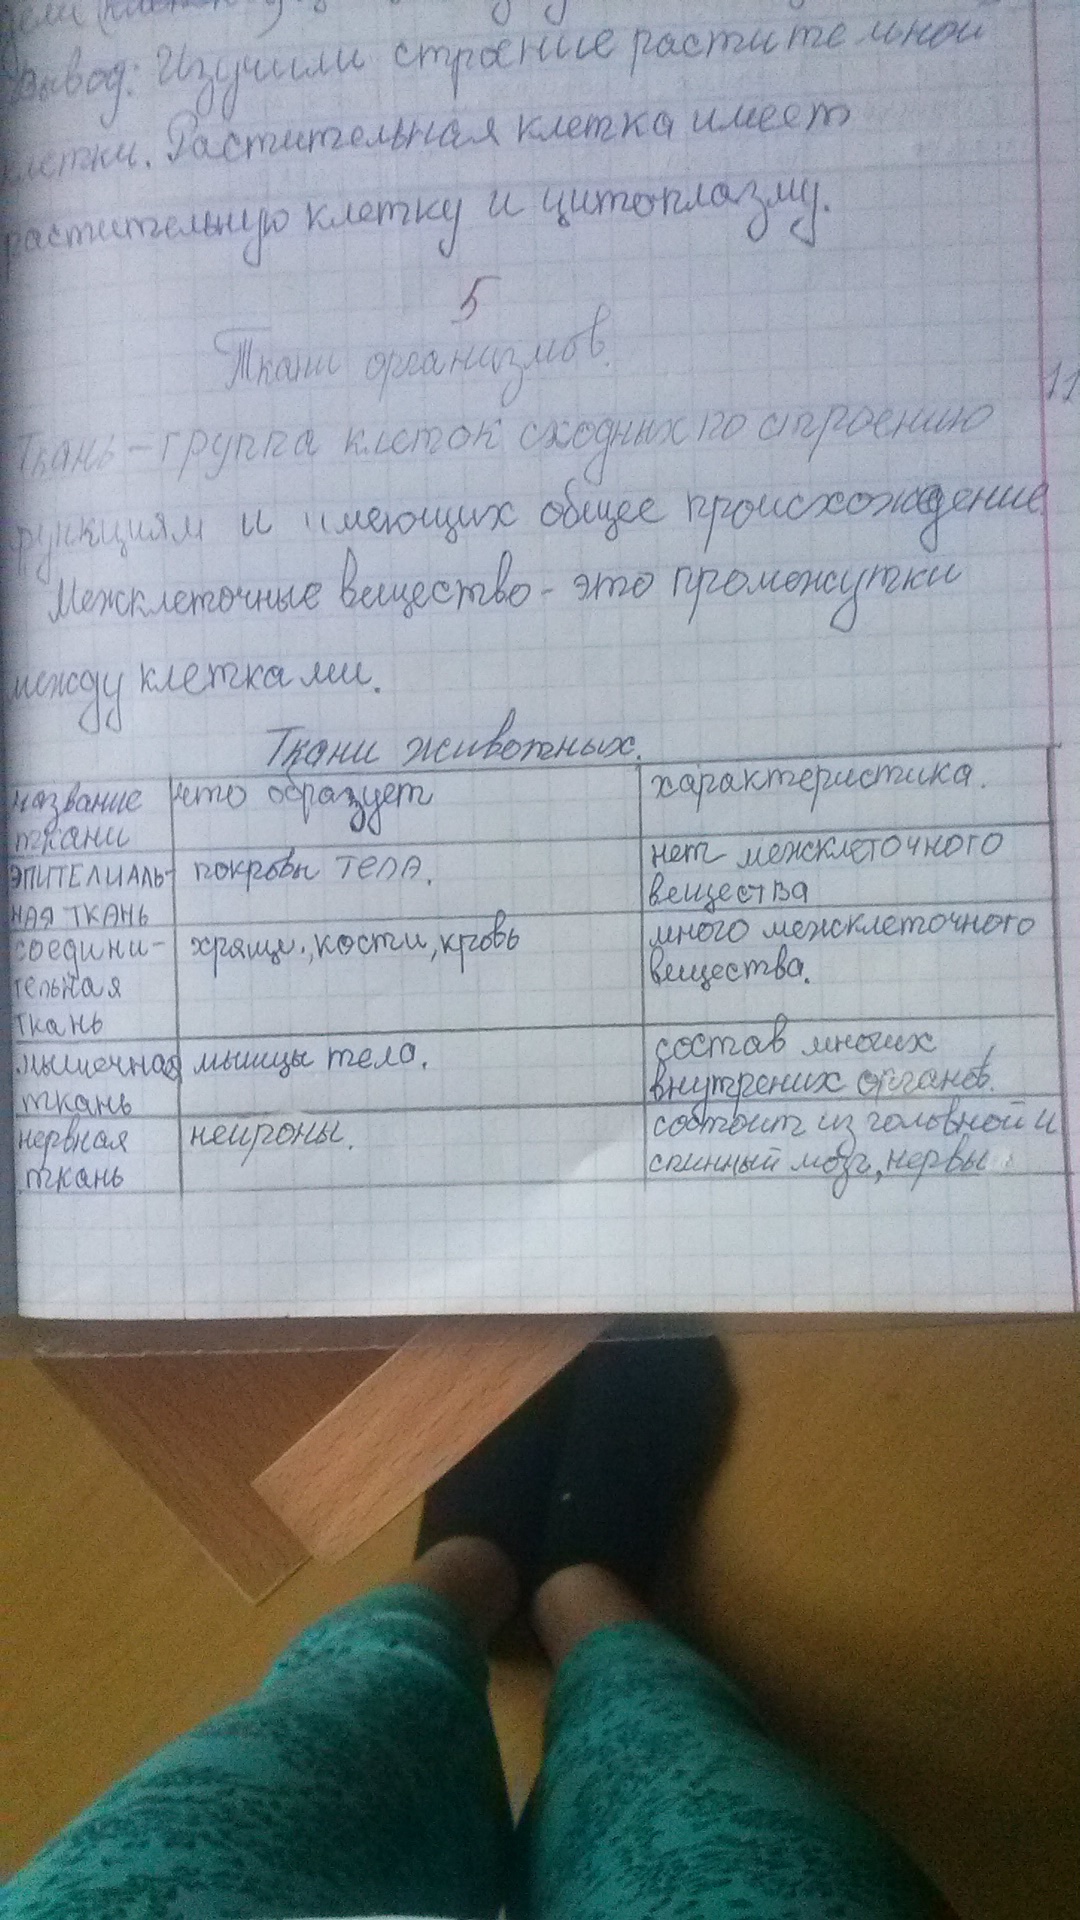 Вывод: Изучили строение растительной
клетки. Растительная клетка имеет
растительную клетку и цитоплазму.
5
Ткани организмов.
11
Ткань - группа клеток сходных по строению
функциям и имеющих общее происхождение.
Межклеточные вещество - это промежутки
между клетками.
Ткани животных.
название ткани что образует характеристика.
эпителиаль- ная ткань покровы тела. нет межклеточного вещества
соедини- тельная ткань хрящи, кости, кровь много межклеточного вещества.
мышечная ткань мышцы тела. состав многих внутрених органов.
нервная ткань нейроны. состоит из головной и спинный мозг, нервы